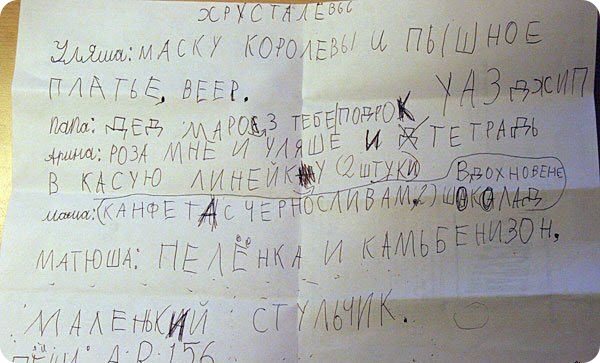 ХРУСТАЛЕВЫЕ
Уляша: МАСКУ КОРОЛЕВЫ И ПЫШНОЕ
ПЛАТЬЕ, ВЕЕР.
УАЗ ДЖИП
ПаПа: ДЕД МАРОЗ ТЕБЕ ПОДРОК
Арина: РОЗА МНЕ И УЛЯШЕ И ТЕТРАДЬ
В КАСУЮ ЛИНЕЙКУ (2 ШТУКИ)
ВДОХНОВЕНЕ
мама: (КАНФЕТА С ЧЕРНОСЛИВАМ, 2) ШОКОЛАД
МАТЮША: ПЕЛЁНКА И КАМЬБЕНИЗОН,
МАЛЕНЬКИЙ СТУЛЬЧИК.
А.Д. 156